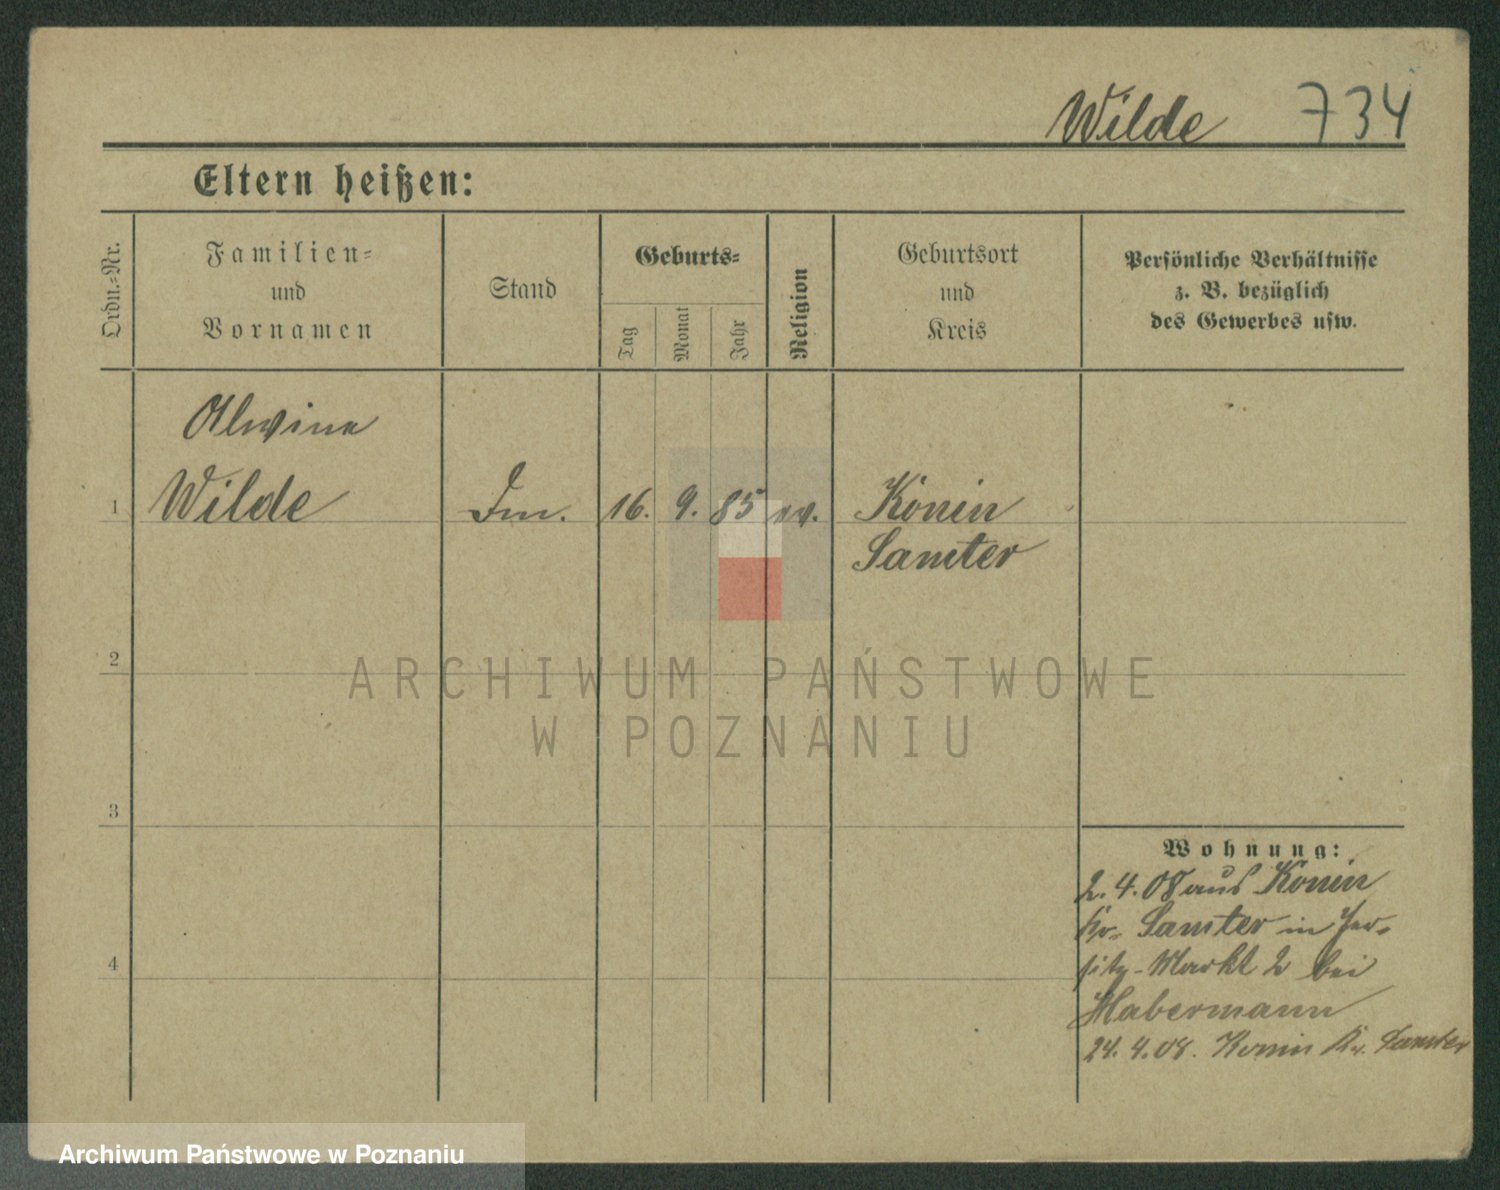 Wilde 734
Eltern heißen:
Ordn.-Nr.
Familien-
und
Vornamen
Stand
Geburts-
Tag
Monat
Jahr
Religion
Geburtsort
und
Kreis
Persönliche Verhältnisse
z. B. bezüglich
des Gewerbes usw.
Alwine
1 Wilde 16. 9. 85 ev. Konin
Samter
2
3
4
Wohnung:
2. 4. 08 aus Konin
Kr. Samter in Jer-
sitz-Markt 2 bei
Habermann
24. 4. 08. Konin Kr. Samter
ARCHIWUM PAŃSTWOWE
W POZNANIU
Archiwum Państwowe w Poznaniu